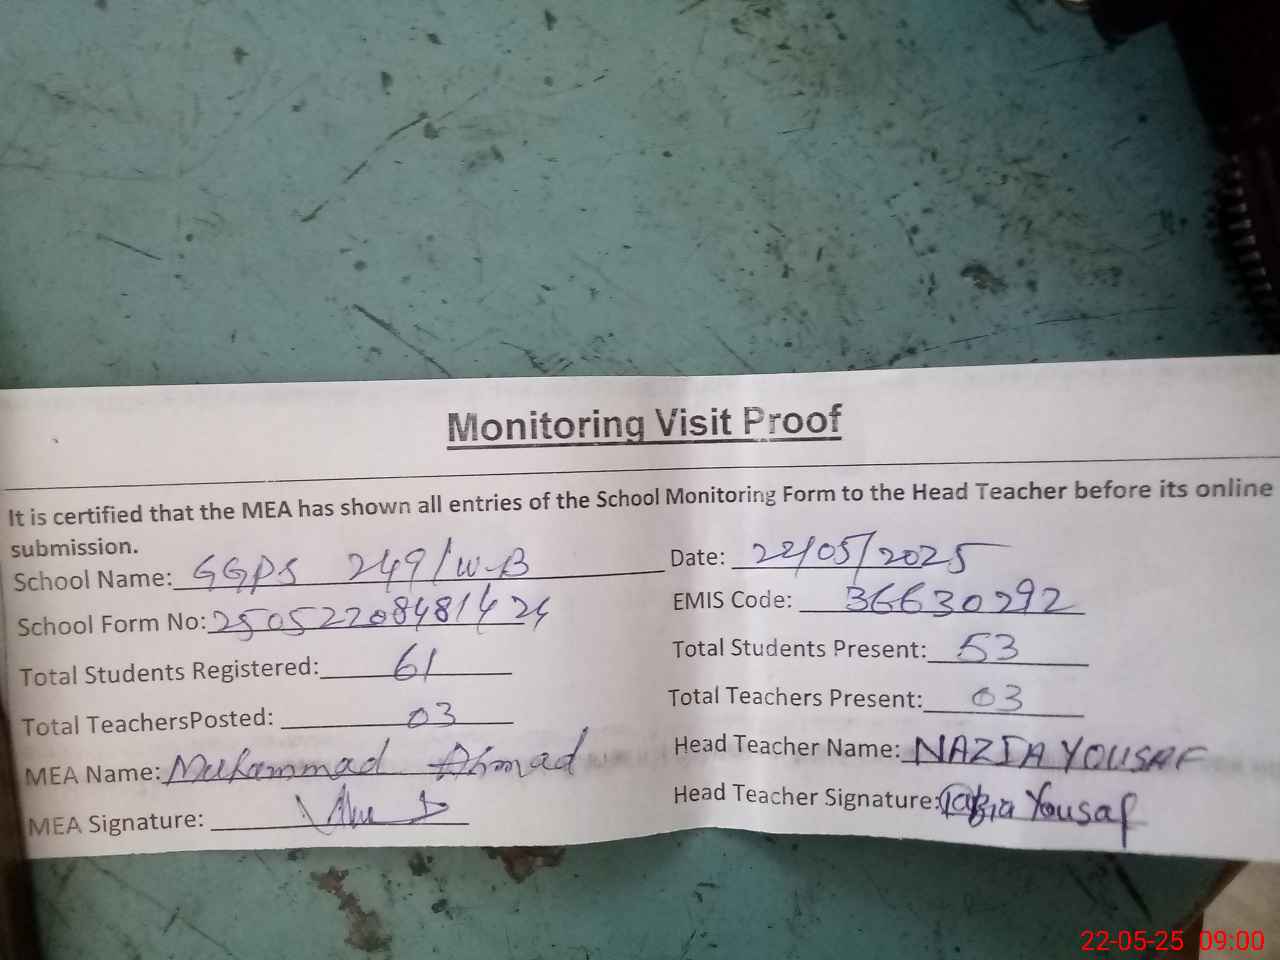 Monitoring Visit Proof
It is certified that the MEA has shown all entries of the School Monitoring Form to the Head Teacher before its online
submission.
School Name: GGPS 249/W-B Date: 22/05/2025
School Form No: 25052208481424 EMIS Code: 36630292
Total Students Registered: 61 Total Students Present: 53
Total TeachersPosted: 03 Total Teachers Present: 03
MEA Name: Muhammad Ahmad Head Teacher Name: NAZIA YOUSAF
MEA Signature: Head Teacher Signature: Yousaf
22-05-25 09:00